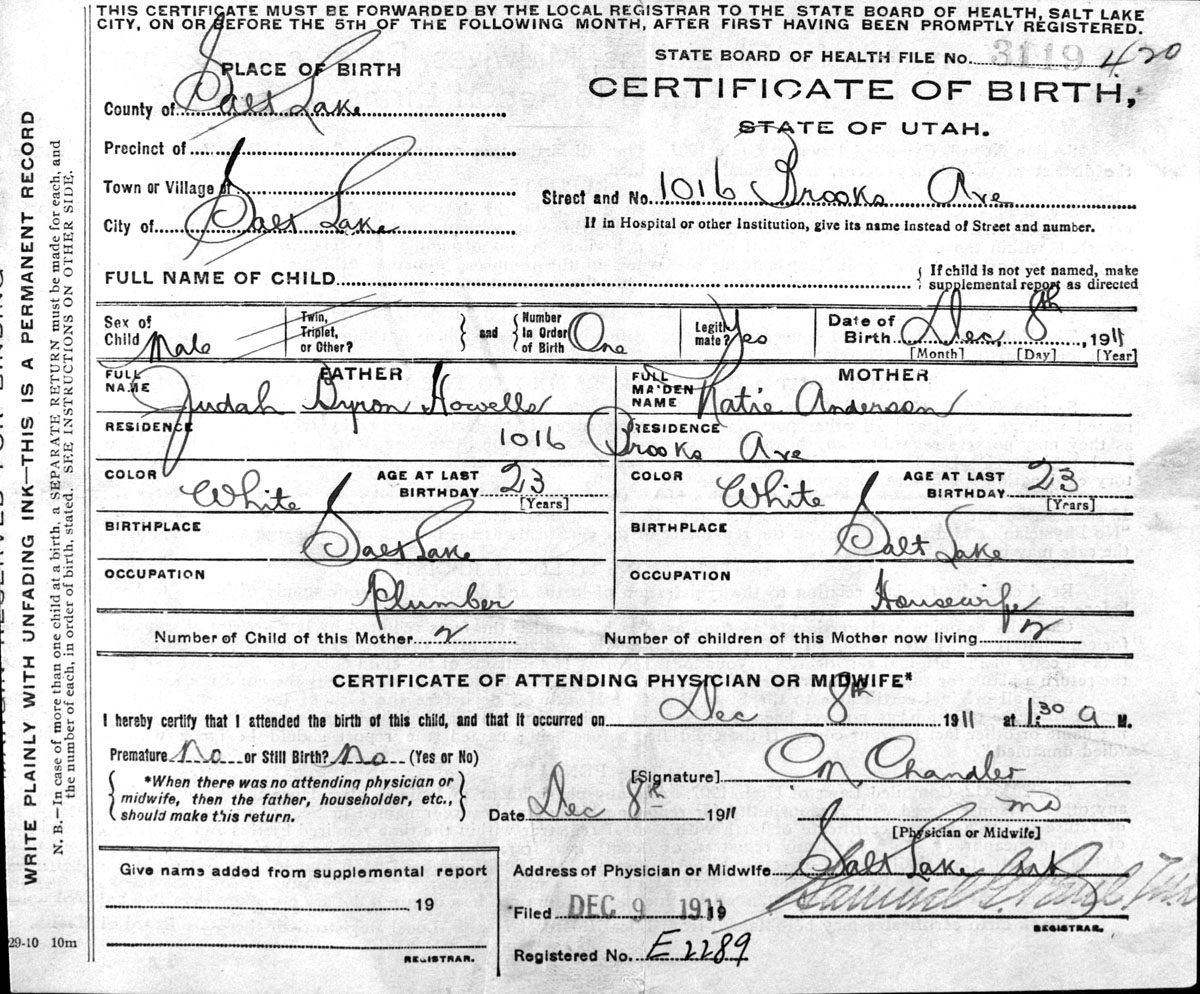 THIS CERTIFICATE MUST BE FORWARDED BY THE LOCAL REGISTRAR TO THE STATE BOARD OF HEALTH, SALT LAKE
CITY, ON OR BEFORE THE 5TH OF THE FOLLOWING MONTH, AFTER FIRST HAVING BEEN PROMPTLY REGISTERED.
STATE BOARD OF HEALTH FILE No. 3119 420
PLACE OF BIRTH
CERTIFICATE OF BIRTH,
County of Salt Lake
STATE OF UTAH.
Precinct of
Town or Village of
Street and No. 1016 Brooks Ave
City of Salt Lake
If in Hospital or other Institution, give its name instead of Street and number.
FULL NAME OF CHILD
{ If child is not yet named, make
supplemental report as directed
Sex of Child Male
Twin, Triplet, or Other? } and { Number In Order of Birth One
Legitimate? Yes
Date of Birth Dec, 8th, 1911
[Month] [Day] [Year]
FATHER
FULL NAME Judah Byron Howells
MOTHER
FULL MAIDEN NAME Katie Anderson
RESIDENCE 1016 Brooks Ave
RESIDENCE
COLOR White
AGE AT LAST BIRTHDAY 23 [Years]
COLOR White
AGE AT LAST BIRTHDAY 23 [Years]
BIRTHPLACE Salt Lake
BIRTHPLACE Salt Lake
OCCUPATION Plumber
OCCUPATION Housewife
Number of Child of this Mother 2
Number of children of this Mother now living 2
CERTIFICATE OF ATTENDING PHYSICIAN OR MIDWIFE*
I hereby certify that I attended the birth of this child, and that it occurred on Dec 8th 1911 at 1:30 a M.
Premature No or Still Birth? No (Yes or No)
{ *When there was no attending physician or
midwife, then the father, householder, etc.,
should make this return. }
[Signature] CM Chandler
md
Date Dec 8th 1911
[Physician or Midwife]
Give name added from supplemental report
, 19
REGISTRAR.
Address of Physician or Midwife Salt Lake
Filed DEC 9 1911 19
REGISTRAR.
Registered No. E2289
29-10 10m
WRITE PLAINLY WITH UNFADING INK—THIS IS A PERMANENT RECORD
N. B.—In case of more than one child at a birth, a SEPARATE RETURN must be made for each, and
the number of each, in order of birth, stated. SEE INSTRUCTIONS ON OTHER SIDE.